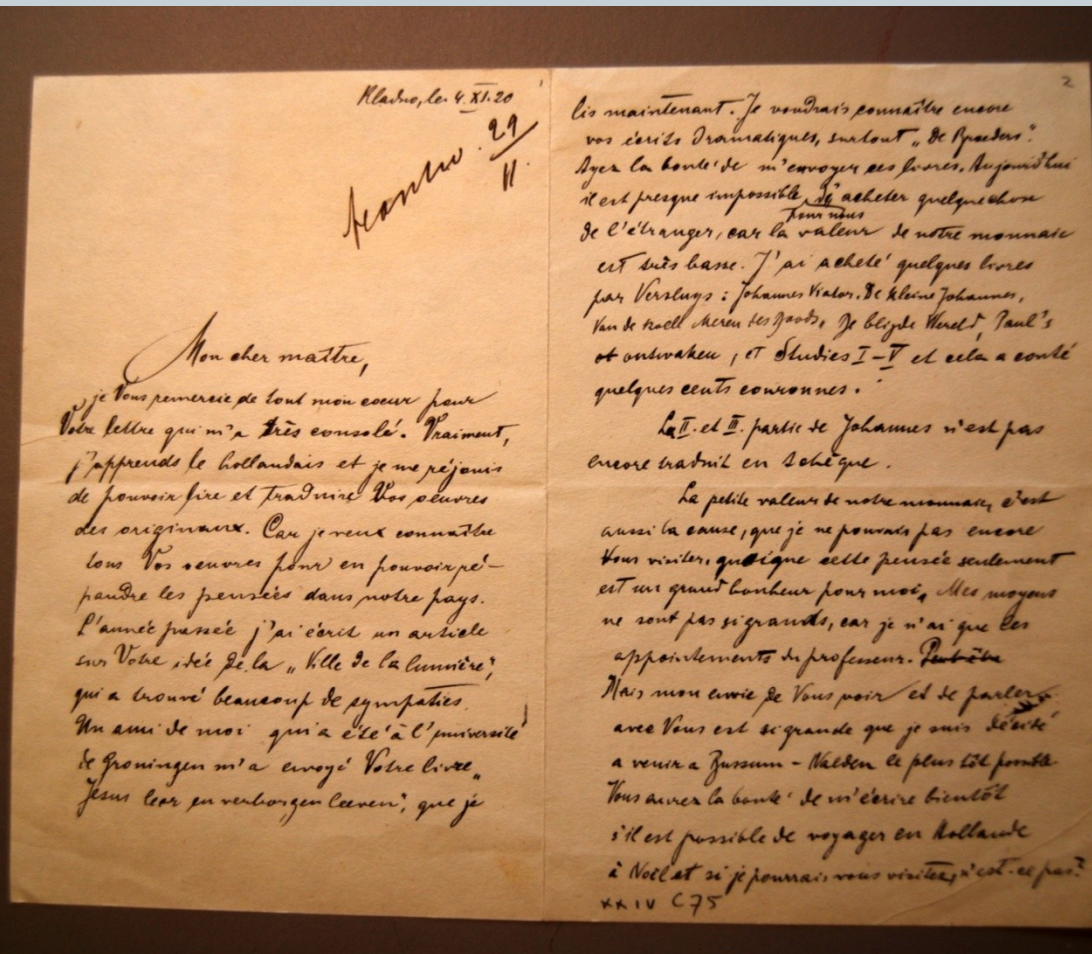 Kladno, le 4. XI. 20
29
11
Mon cher maître,
je Vous remercie de tout mon coeur pour
Votre lettre qui m'a très consolé. Vraiment,
j'apprends le hollandais et je me réjouis
de pouvoir lire et traduire Vos oeuvres
des originaux. Car je veux connaître
tous Vos oeuvres pour en pouvoir ré-
pandre les pensées dans notre pays.
L'année passée j'ai écrit un article
sur Votre idée de la „Ville de la lumière",
qui a trouvé beaucoup de sympaties.
Un ami de moi qui a été à l'université
de Groningen m'a envoyé Votre livre „
Jesus leer en verborgen leeven", que je
2
lis maintenant. Je voudrais connaître encore
vos écrits dramatiques, surtout „De Broeders".
Ayez la bonté de m'envoyer ces livres. Aujourd'hui
il est presque impossible d'acheter quelque chose
pour nous
de l'étranger, car la valeur de notre monnaie
est très basse. J'ai acheté quelques livres
par Versluys : Johannes Viator, De kleine Johannes,
Van de koele Meren des Doods, De blijde Wereld, Paul's
ontwaken, et Studies I–V et cela a couté
quelques cents couronnes.
La II. et III. partie de Johannes n'est pas
encore traduit en tchèque.
La petite valeur de notre monnaie, c'est
aussi la cause, que je ne pouvais pas encore
Vous visiter, quoique cette pensée seulement
est un grand bonheur pour moi. Mes moyens
ne sont pas si grands, car je n'ai que les
appointements du professeur. Peut-être
Mais mon envie de Vous voir et de parler
avec Vous est si grande que je suis décidé
a venir a Bussum – Walden le plus tôt possible
Vous aurez la bonté de m'écrire bientôt
s'il est possible de voyager en Hollande
à Noël et si je pourrais vous visiter, n'est-ce pas?
XXIV C 75